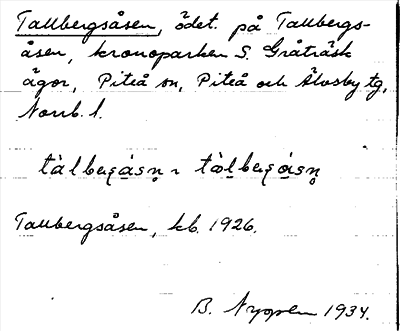 Tallbergsåsen, ödet. på Tallbergs-
åsen, kronoparken S. Gråträsk
ägor, Piteå sn, Piteå och Älvsby tg,
Norrb. l.
Tallbergsåsen, kb. 1926.
B. Nygren 1934.